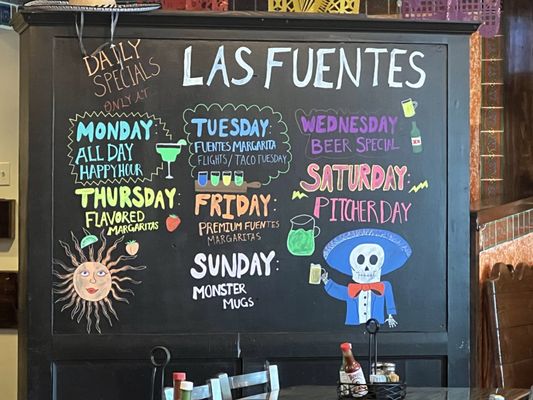 DAILY
SPECIALS
ONLY AT
LAS FUENTES
MONDAY:
ALL DAY
HAPPY HOUR
TUESDAY:
FUENTES MARGARITA
FLIGHTS / TACO TUESDAY
WEDNESDAY
BEER SPECIAL
THURSDAY
FLAVORED
MARGARITAS
FRIDAY:
PREMIUM FUENTES
MARGARITAS
SATURDAY:
PITCHER DAY
SUNDAY:
MONSTER
MUGS